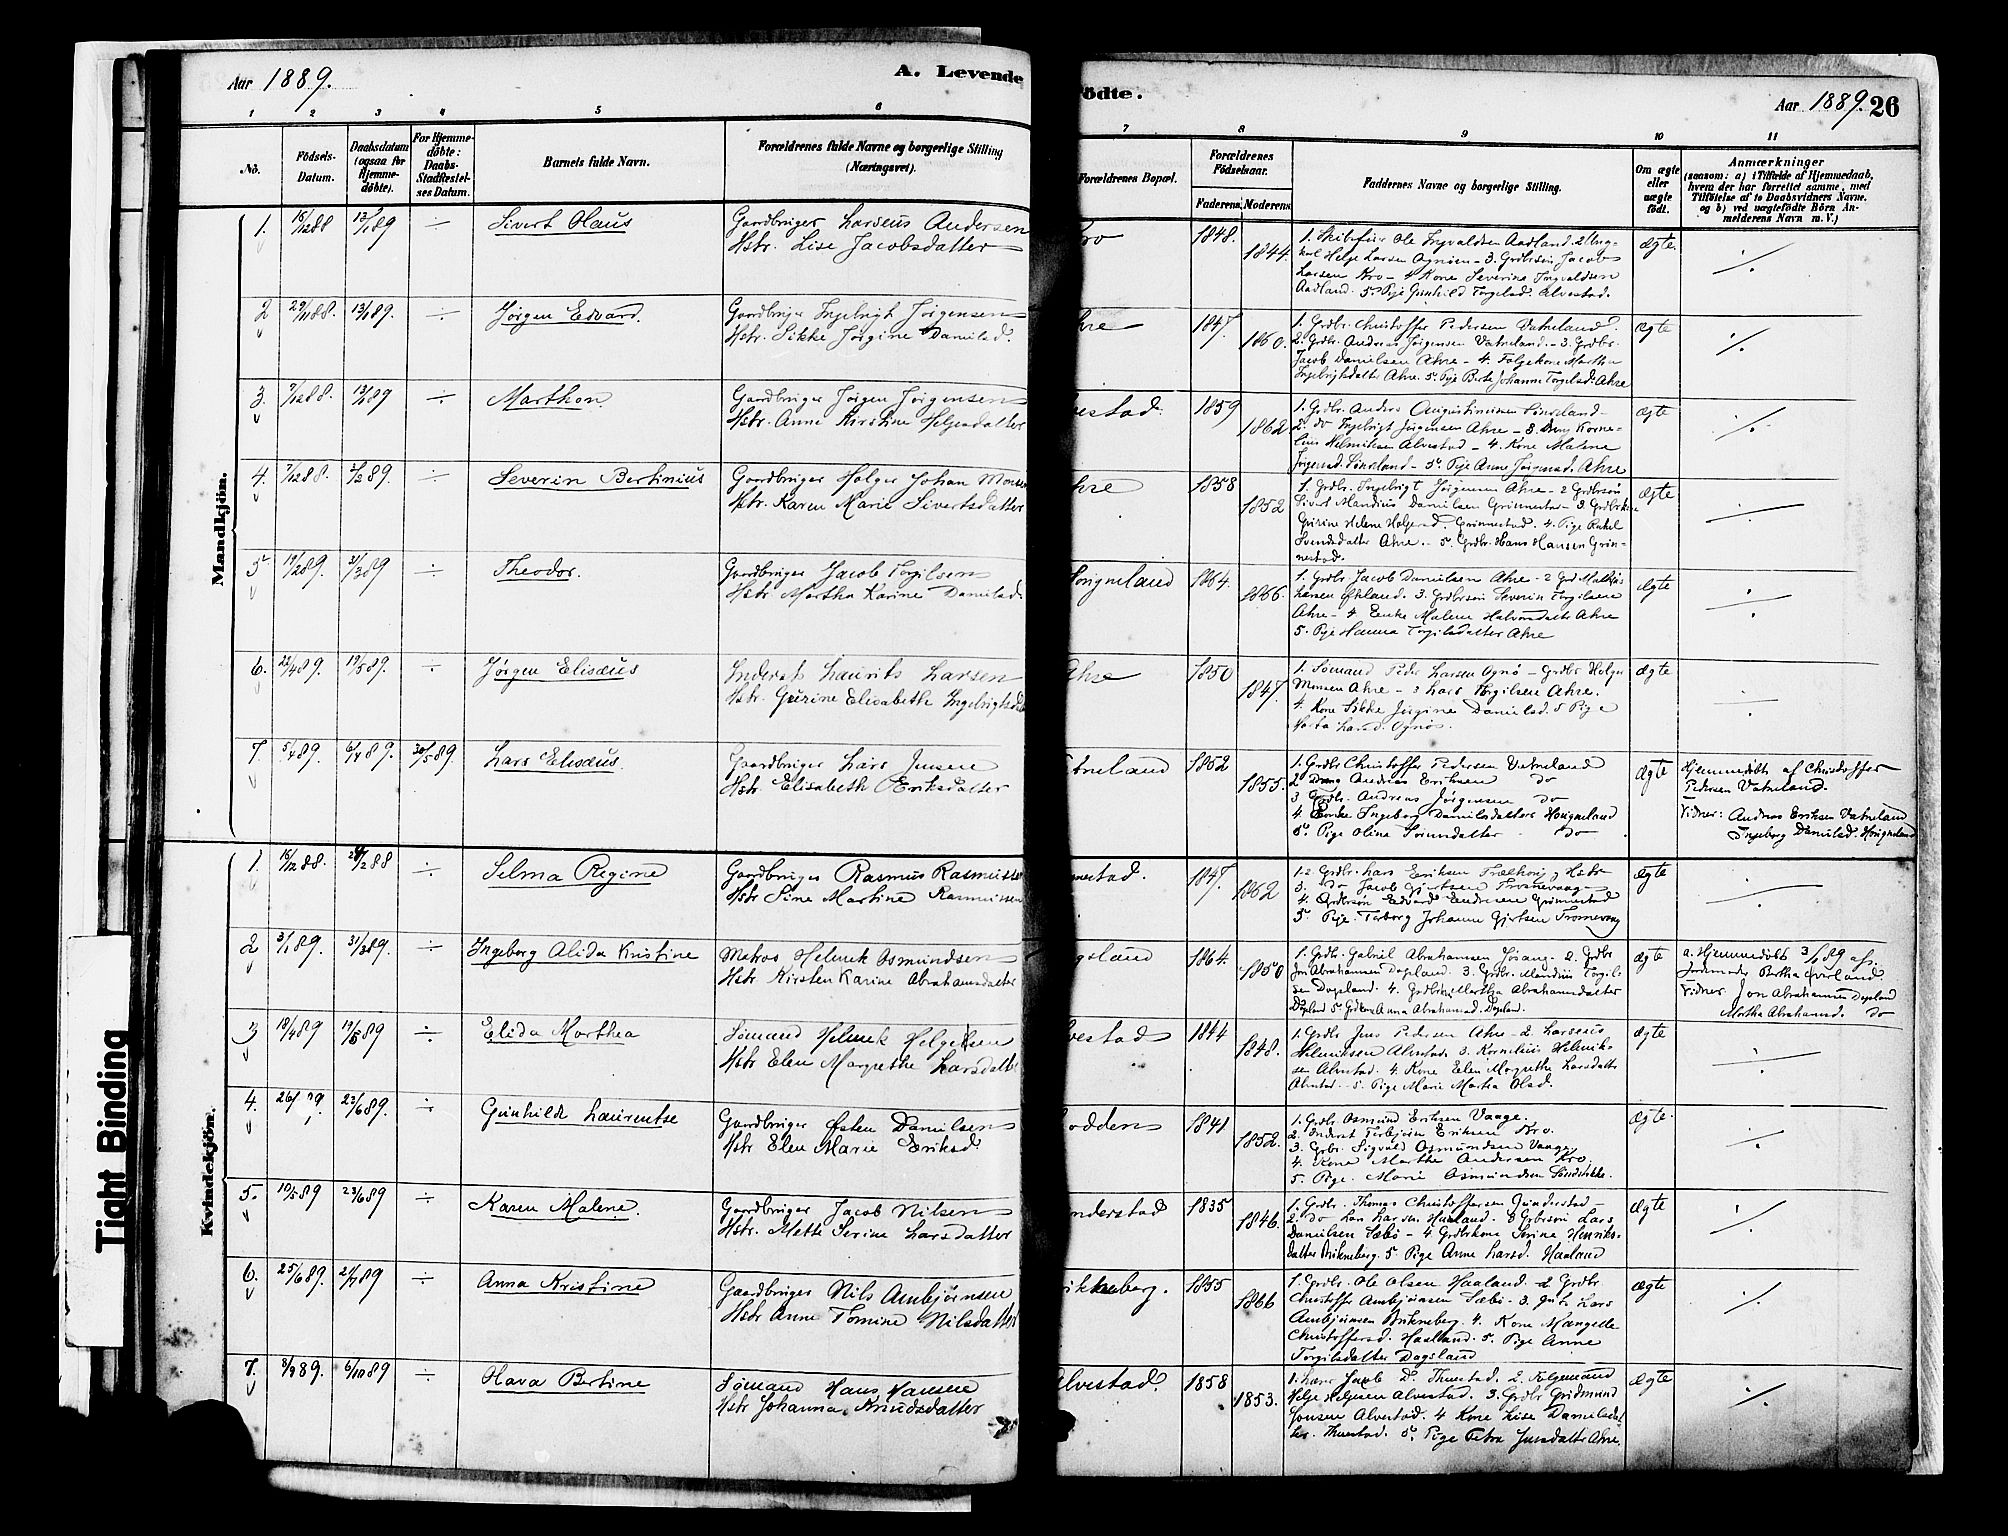 Aar 1889.
A. Levende
1 2 3 4 5 6
No.
Födsels-
Datum.
Daabsdatum
(ogsaa for
Hjemme-
döbte).
For Hjemme-
döbte:
Daabs-
Stadfæstel-
ses Datum.
Barnets fulde Navn.
Forældrenes fulde Navne og borgerlige Stilling
(Næringsvei).
Mandkjön.
1. 15/12 88 13/1 89 ÷ Sivert Olaus Gaardbruger Larseus Andersen
Hstr. Lise Jacobsdatter
2 29/11 88. 13/1 89. ÷ Jørgen Edvard. Gaardbruger Ingebrigt Jørgensen
Hstr. Sikke Jørgine Danielsd.
3. 7/12 88. 13/1 89 ÷ Marthon. Gaardbruger Jørgen Jørgensen
Hstr. Anne Kirstine Helgesdatter
4. 7/12 88. 3/2 89. ÷ Severin Bertinius Gaardbruger Holger Johan Monsen
Hstr. Karen Marie Sivertsdatter
5 19/2 89. 31/3 89 ÷ Theodor. Gaardbruger Jacob Torgilsen
Hstr Martha Karine Danielsd.
6. 22/4 89. 19/5 89. ÷ Jørgen Elisæus Inderst Laurits Larsen
Hstr. Gurine Elisabeth Ingebrigtsdat
7. 5/4 89. 6/4 89. 30/5 89 Lars Elisæus. Gaardbruger Lars Jensen
Hstr. Elisabeth Eriksdatter
Kvindekjön.
1. 16/12 88. 26/12 88 ÷ Selma Regine Gaardbruger Rasmus Rasmussen
Hstr Sine Martine Rasmussen
2 3/1 89. 31/3 89. ÷ Ingeborg Alida Kristine Matros Helmik Osmundsen
Hstr Kirsten Karine Abrahamsdatter
3 18/4 89 19/5 89 ÷ Elida Marthea Sömand Helmik Helgesen
Hstr Elen Margrethe Larsdatt
4. 26/ 89. 23/6 89. ÷ Gunhilde Laurentse Gaardbruger Østen Danielsen
Hstr Elen Marie Eriksd.
5. 10/5 89 23/6 89 ÷ Karen Malene. Gaardbruger Jacob Nilsen
Hstr. Mette Serine Larsdatter
6. 25/6 89. 21/7 89 ÷ Anna Kristine Gaardbruger Nils Ambjörnsen
Hstr Anne Tomine Nilsdatter
7. 8/9 89. 6/10 89 ÷ Olava Bertine Sömand Hans Hansen
Hstr Johanna Knudsdatter
Tight Binding
ödte.
Aar 1889. 26
7 8 9 10 11
Forældrenes Bopæl.
Forældrenes
Födselsaar.
Faderens. Moderens.
Faddernes Navne og borgerlige Stilling.
Om ægte
eller
uægte
födt.
Anmærkninger
(saasom: a) i Tilfælde af Hjemmedaab,
hvem der har forrettet samme, med
Tilföielse af to Daabsvidners Navne.
og b) ved uægtefödte Börn An-
melderens Navn m. V.)
Kro 1848. 1844. 1. Skibsfører Ole Ingvaldsen Aadland. 2 Ung-
karl Helge Larsen Ognöen - 3. Grdbrsön Jacob
Larsen Kro - 4 Kone Severine Ingvaldsen
Aadland. 5. Pige Gunhild Torgilsd. Alvestad. ægte.
hre 1847. 1860. 1. Grdbr. Christoffer Pedersen Vatneland.
2. Grdbr. Andreas Jørgensen Vatneland. - 3. Grdbr.
Jacob Danielsen Ahre - 4. Følgekone Martha
Ingebrigtsdatter Ahre. 5. Pige Berte Johanne Torgilsd. Ahre ægte
vestad. 1859 1862 1. Grdbr. Anders Augustinussen
2. do Ingebrigt Jørgensen Ahre - 3. Dreng Korne-
lius Helmiksen Alvestad - 4. Kone Malene
Jørgensd. - 5. Pige Anne Jørgensd. Ahre ægte
hre 1858 1852 1. Grdbr. Ingebrigt Jörgensen Ahre - 2 Grdbrsön
Sivert Mandius Danielsen Grönnestad - 3. Grdbrkone
Gurine Helene Holgersd. Grönnestad. 4. Pige Rakel
Svendsdatter Ahre. - 5. Grdbr. Hans Hansen Grön-
nestad. ægte
origneland 1864. 1866. 1. Grdbr. Jacob Danielsen Ahre - 2 Grd Mathias
Larsen Økland. 3. Grdbrsön Severin Torgilsen
Ahre - 4 Enke Malene Halvorsdatter Ahre
5. Pige Hanna Torgilsdatter Ahre ægte
Ahre 1850 1847. 1. Sömand Peder Larsen Ognö - Grdbr Holger
Monsen Ahre - 3 Lars Torgilsen Ahre.
4. Kone Sikke Jørgine Danielsd. 5 Pige
Marta Larsd. Ognö. ægte
atneland 1852 1855. 1. Grdbr Christoffer Pedersen Vatneland
2 Dreng Andreas Eriksen do
3 Grdbr. Andreas Jørgensen do
4. Enke Ingeborg Danielsdatter Horigneland
5. Pige Oline Sörensdatter do ægte Hjemmedöbt af Christoffer
Pedersen Vatneland.
Vidner: Andreas Eriksen Vatneland
Ingeborg Danielsd. Horigneland
nestad. 1847. 1862 1.2. Grdbr. Lars Eriksen Trælhoug & Hstr
3. do Jacob Gjertsen Tronnevaag
4. Grdbrsön Edvard Endresen Grönnestad
5. Pige. Torborg Johanne Gjertsen Tronnevaag ægte
gsland 1864. 1850 1. Grdbr. Gabriel Abrahamsen - 2. Grdbr
Jon Abrahamsen Dagsland. 3. Grdbr. Mandius Torgil-
sen Dagsland. 4. Grdbrk. Martha Abrahamsdatter
Dagsland 5 Grdkone Anna Abrahamsd. Dagsland. ægte a. Hjemmedöbt 3/1 89 af
Jordmoder Bertha Øverland.
Vidner Jon Abrahamsen Dagsland
Martha Abrahamsd. do
vestad 1844 1848. 1. Grdbr Jens Pedersen Ahre - 2. Larseus
Helmiksen Alvestad. 3. Kornelius Helmik-
sen Alvestad. 4. Kone Elen Margrethe Larsdatter
Alvestad. - 5. Pige Marie Martha Olsd. ægte
odden 1841 1852. 1. Grdbr Osmund Eriksen Vaage.
2. Inderst Torbjörn Eriksen Kro.
3. Grbr. Sigvald Osmundsen Vaage
4. Kone Marthe Andersen Kro.
5. Pige. Marie Osmundsen ægte.
nderstad 1835 1846. 1. Grdbr. Thomas Christoffersen Gunderstad -
2. do Lars Larsen Haaland. 3 Grdbrsön Lars
Danielsen Sæbö - 4 Grdbrkone Serine Henriks-
datter Birkneberg. 5 Pige Anne Larsd. Haaland ægte
rkneberg. 1855 1866 1. Grdbr. Ole Olsen Haaland - 2 Grdbr.
Christoffer Ambjörnsen Sæbö - 3. Lars
Ambjörnsen Birkneberg. 4. Kone Mangelle
Christoffersd. Haaland. 5. Pige Anne
Torgilsdatter Dagsland ægte
Alvestad. 1858 1853. 1. Lærer Jacob D. Thuestad. 2. Følgemand
Helge Helgesen Alvestad. 3. Grdbr Gudmund
Jonsen Alvestad. 4 Kone Lise Danielsdat
ter. Thuestad. 5. Pige Petra Jensdatter Ahre. ægte